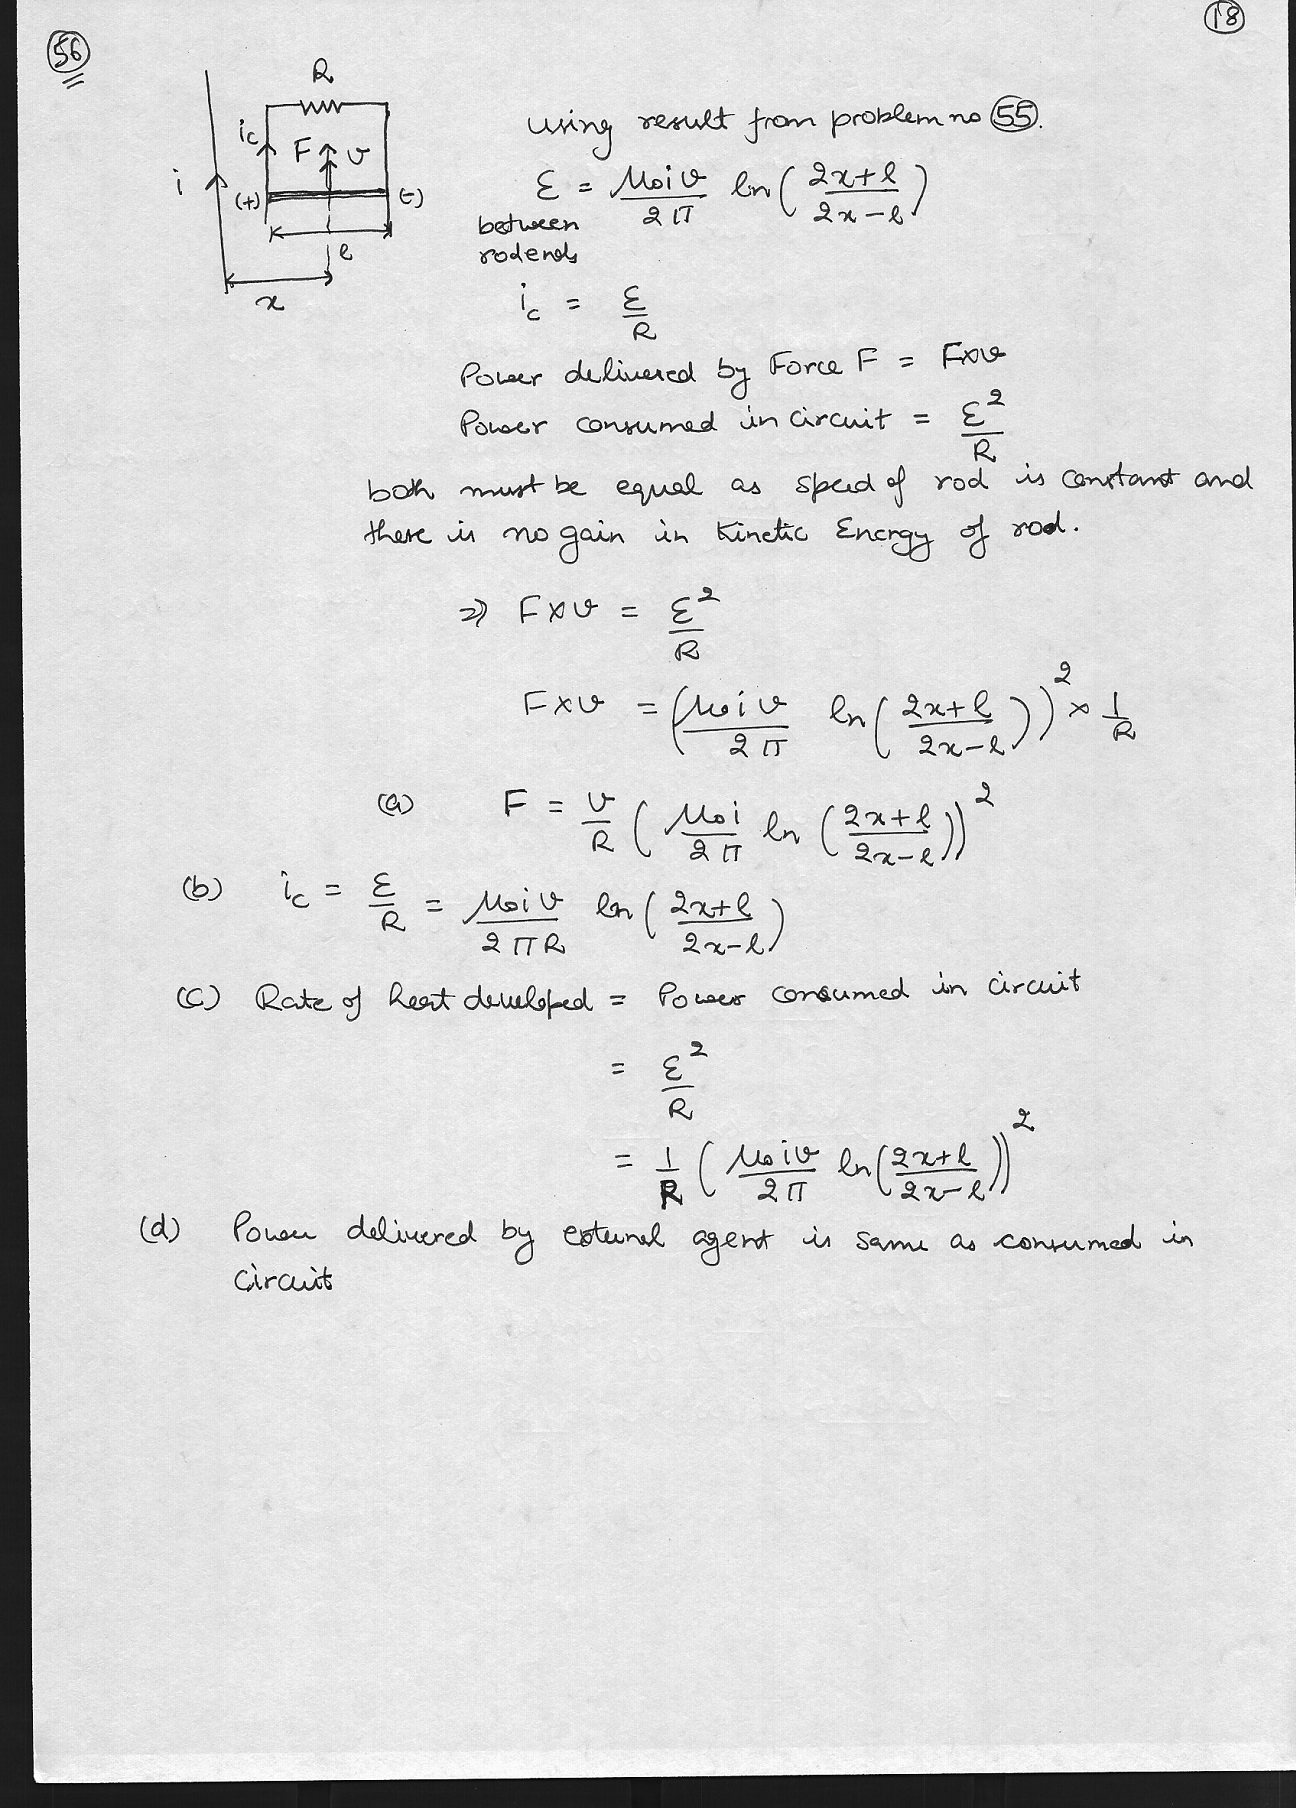 56
18
R
i_c
F
v
i
(+)
(-)
l
x
using result from problem no 55.
ε = μ₀iv/2π ln(2x+l/2x-l)
between
rod ends
i_c = ε/R
Power delivered by Force F = F×v
Power consumed in circuit = ε²/R
both must be equal as speed of rod is constant and
there is no gain in Kinetic Energy of rod.
⇒ F×v = ε²/R
F×v = (μ₀iv/2π ln(2x+l/2x-l))² × 1/R
(a) F = v/R (μ₀i/2π ln(2x+l/2x-l))²
(b) i_c = ε/R = μ₀iv/2πR ln(2x+l/2x-l)
(c) Rate of heat developed = Power consumed in circuit
= ε²/R
= 1/R (μ₀iv/2π ln(2x+l/2x-l))²
(d) Power delivered by external agent is same as consumed in
circuit